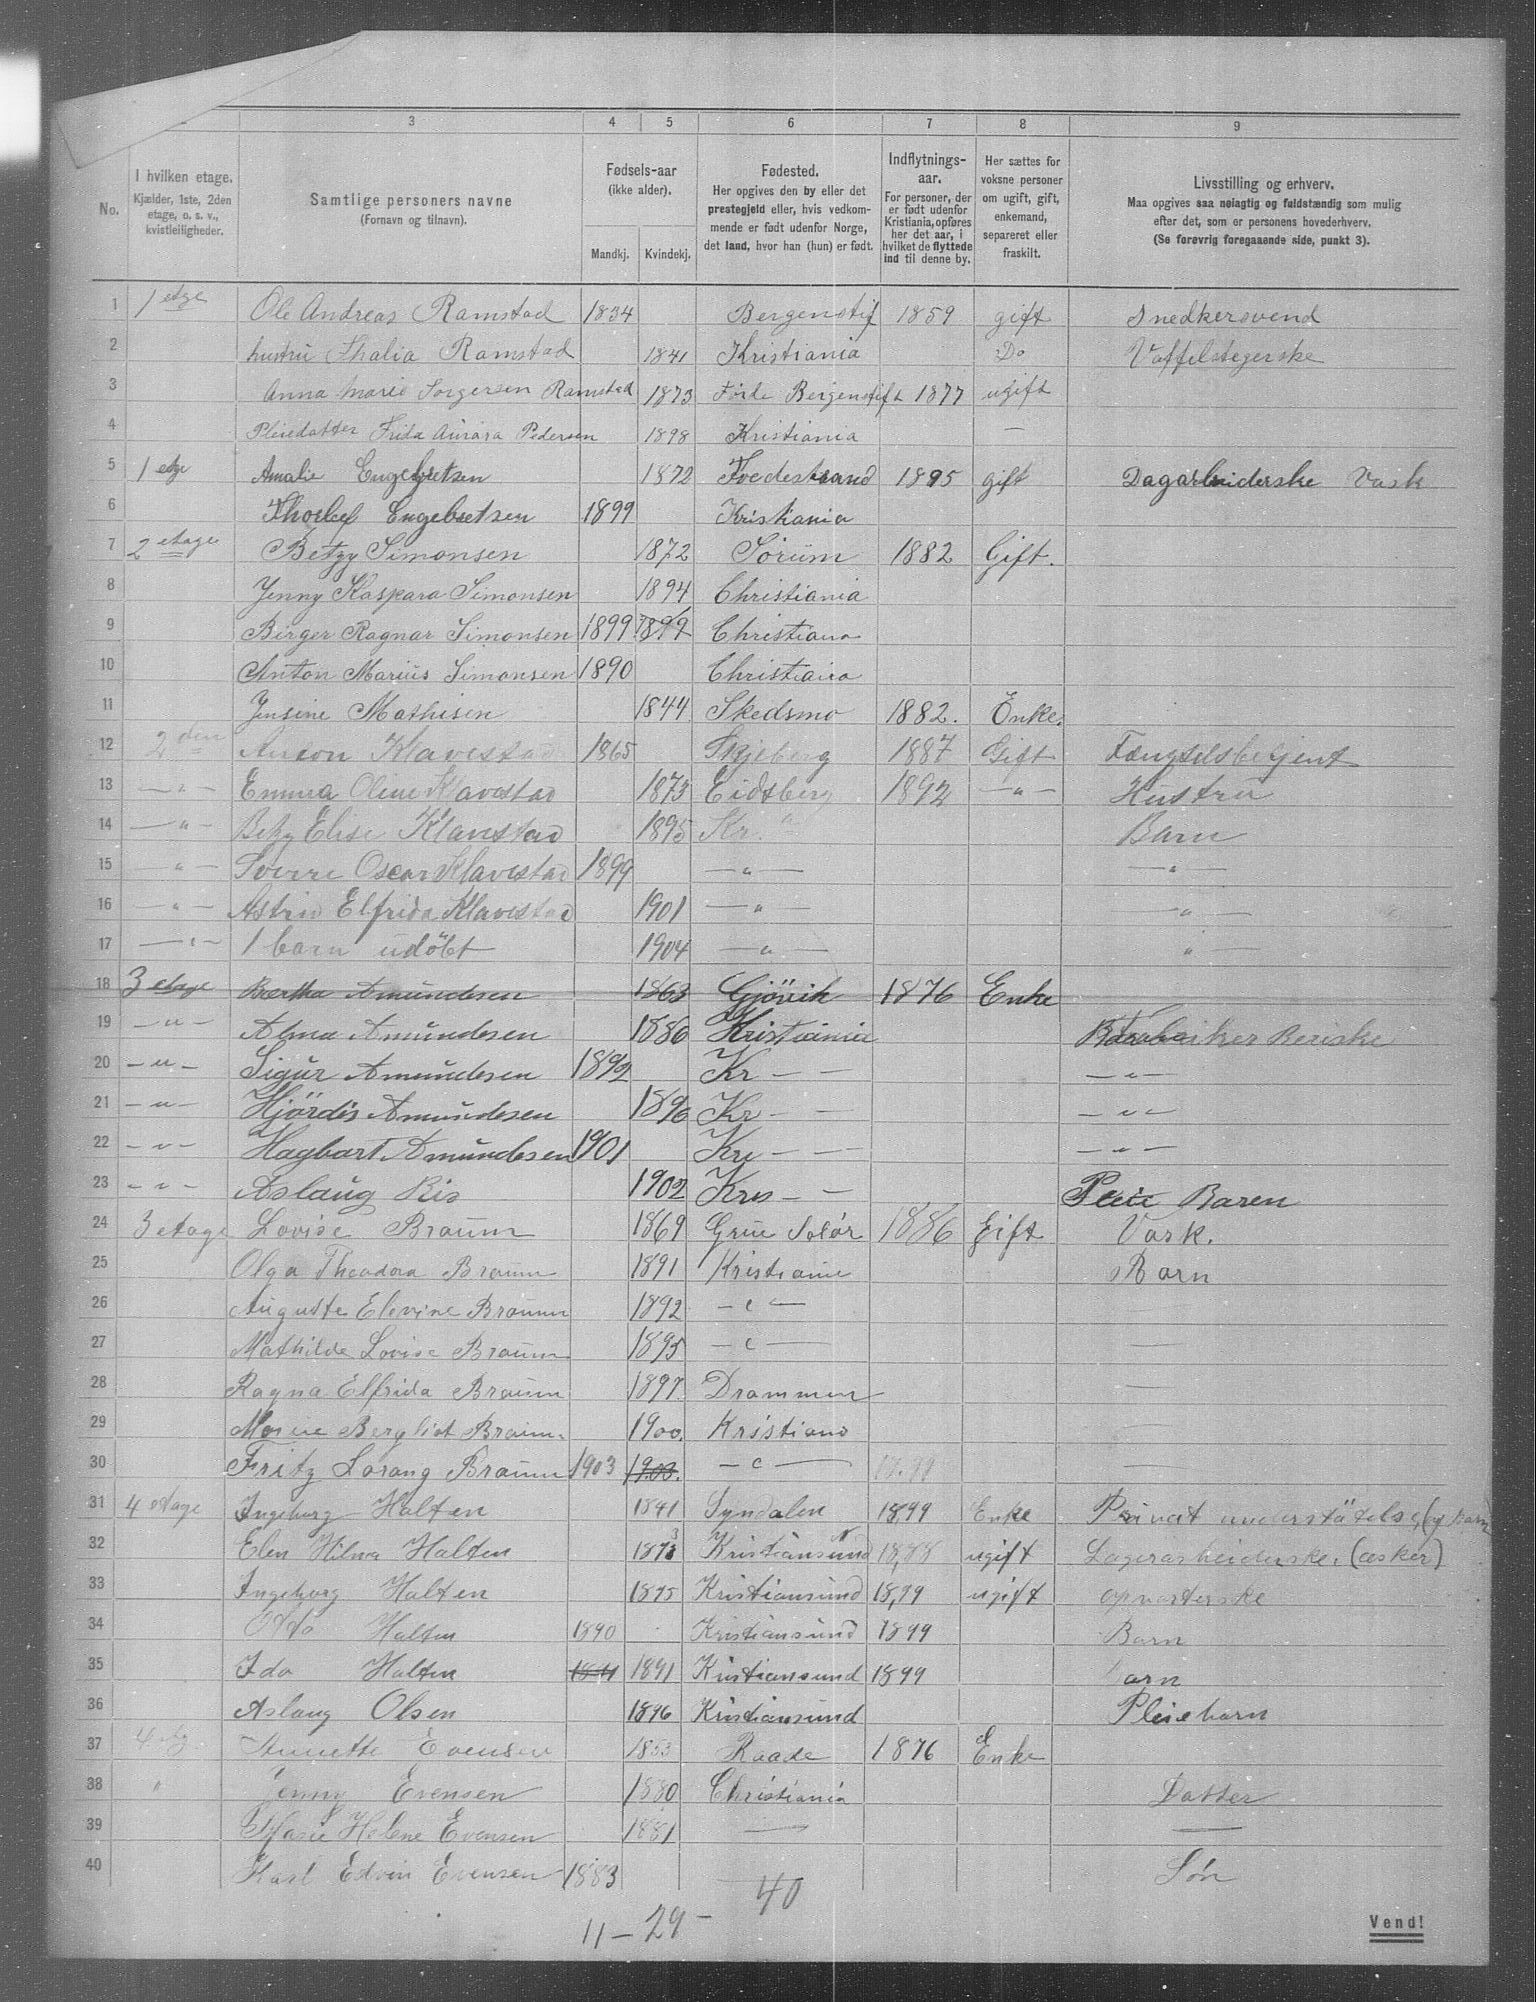 3 4 5 6 7 8 9
No.
I hvilken etage.
Kjælder, 1ste, 2den
etage, o. s. v.,
kvistleiligheder.
Samtlige personers navne
(Fornavn og tilnavn).
Fødsels-aar
(ikke alder).
Mandkj. Kvindekj.
Fødested.
Her opgives den by eller det
prestegjeld eller, hvis vedkom-
mende er født udenfor Norge,
det land, hvor han (hun) er født.
Indflytnings-
aar.
For personer, der
er født udenfor
Kristiania, opføres
her det aar, i
hvilket de flyttede
ind til denne by.
Her sættes for
voksne personer
om ugift, gift,
enkemand,
separeret eller
fraskilt.
Livsstilling og erhverv.
Maa opgives saa nøiagtig og fuldstændig som mulig
efter det, som er personens hovederhverv.
(Se forøvrig foregaaende side, punkt 3).
1 1 etge Ole Andreas Ramstad 1834 Bergenstif 1859 gift Snedkersvend
2 hustru Thalia Ramstad 1841 Kristiania Do Vaffelstegerske
3 Anna Marie Torgersen Ramstad 1873 Førde Bergenstift 1877 ugift
4 Pleiedatter Frida Aurora Pedersen 1898 Kristiania —
5 1 etge Amalie Engebretsen 1872 Tvedestrand 1895 gift Dagarbeiderske Vask
6 Thorlef Engebretsen 1899 Kristiania
7 2 etage Betzy Simonsen 1872 Sørum 1882 Gift.
8 Jenny Kaspara Simonsen 1894 Christiania
9 Birger Ragnar Simonsen 1899 1899 Christiana
10 Anton Marius Simonsen 1890 Christiania
11 Jensine Mathisen 1844 Skedsmo 1882. Enke.
12 2den Anton Klavestad 1865 Skjeberg 1887 Gift Fængselsbetjent
13 —"— Emma Oline Klavestad 1873 Eidsberg 1892 —"— Hustru
14 —"— Betzy Elise Klavestad 1895 Kr. " Barn
15 —"— Sverre Oscar Klavestad 1899 —"— —"—
16 —"— Astrid Elfrida Klavestad 1901 —"— —"—
17 —"— 1 barn udöbt 1904 —"— "—
18 3 etage Bertha Amundsen 1863 Gjövik 1876 Enke
19 —"— Alma Amundsen 1886 Kristiania
20 —"— Sigur Amundsen 1892 Kr — — —"—
21 —"— Hjördis Amundsen 1896 Kr — — —"—
22 —"— Hagbart Amundsen 1901 Kri — — —"—
23 —"— Aslaug Ris 1902 Kris — — Pleie Baren
24 3 etage Lovise Braum 1869 Grue Solør 1886 Gift Vask.
25 Olga Theodora Braum 1891 Kristiania Barn
26 Auguste Elevine Braum 1892 —"—
27 Mathilde Lovise Braum 1895 —"— —
28 Ragna Elfrida Braum 1897. Drammen —
29 Marie Bergliot Braum. 1900. Kristiana —
30 Fritz Lorang Braum 1903 1903. —"— —
31 4 etage Ingeborg Halten 1841 Syndalen 1899 Enke Privat understøtelse
32 Elen Hilma Halten 1873 Kristiansund N 1888 ugift Lagerarbeiderske. (æsker)
33 Ingeborg Halten 1875 Kristiansund 1899 ugift opvarterske
34 Halten 1890 Kristiansund 1899 Barn
35 Ida Halten 1891 1891 Kristiansund 1899 arn
36 Aslaug Olsen 1896 Kristiansund Pleiebarn
37 4 etg Annette Evensen 1853 Raade 1876 Enke
38 " Jenny Evensen 1880 Christiania Datter
39 Marie Helene Evensen 1881 — —
40 Karl Edvin Evensen 1883 Søn
40
11 — 29 —
Vend!